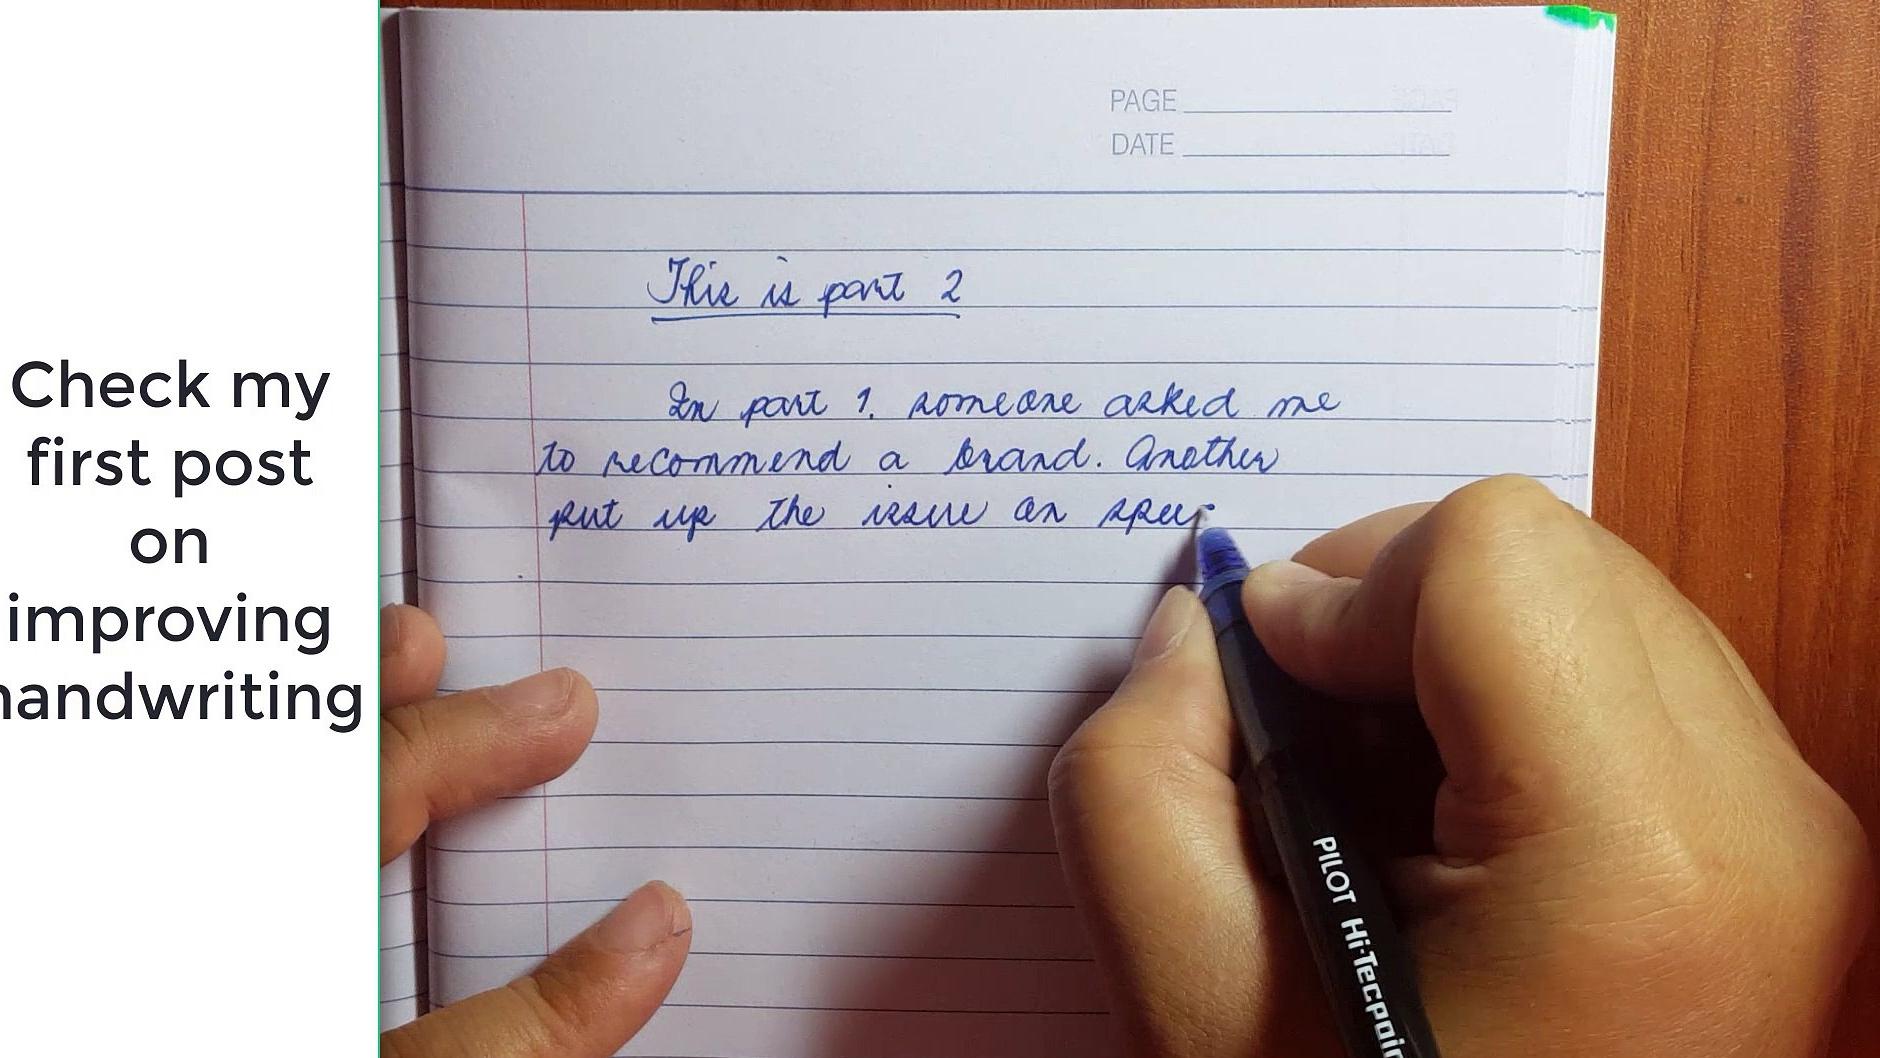 Check my
first post
on
improving
handwriting
PAGE
DATE
This is part 2
In part 1. someone asked me
to recommend a brand. Another
put up the issue on spee
PILOT Hi-Tecpoin